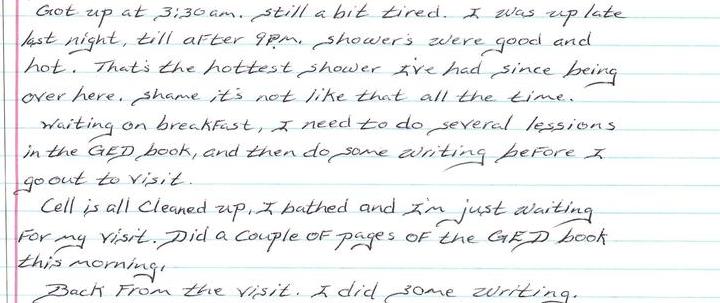 Got up at 3:30am. still a bit tired. I was up late
last night, till after 9PM. shower's were good and
hot. That's the hottest shower I've had since being
over here. shame it's not like that all the time.
waiting on breakfast, I need to do several lessions
in the GED book, and then do some writing before I
go out to visit.
Cell is all cleaned up, I bathed and I'm just waiting
For my visit. Did a couple of pages of the GED book
this morning.
Back From the visit. I did some writing.